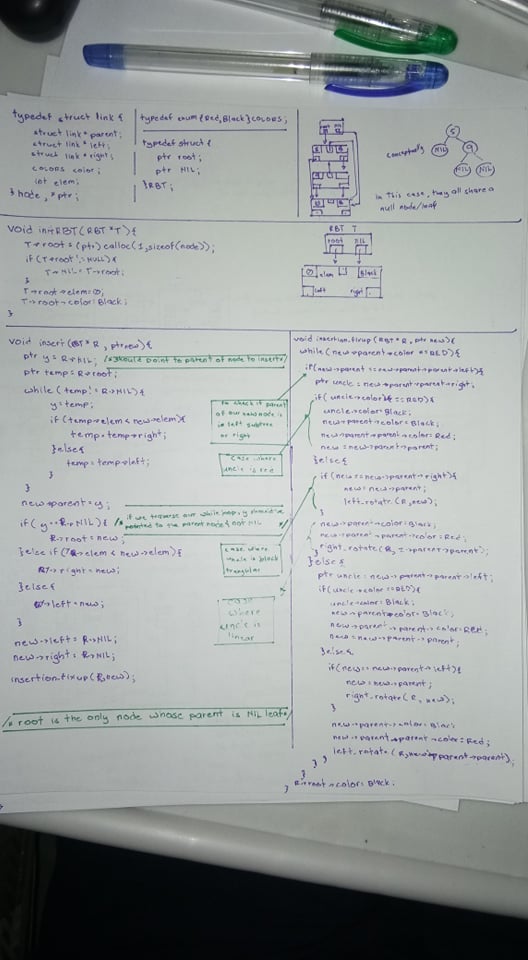 typedef struct link {
struct link * parent;
struct link * left;
struct link * right;
COLORS color;
int elem;
} node, * ptr;
typedef enum {Red, Black} COLORS;
typedef struct {
ptr root;
ptr NIL;
} RBT;
conceptually
5
NIL
9
NIL
NIL
In this case, they all share a
null node/leaf
void initRBT(RBT *T){
T->root = (ptr) calloc(1, sizeof(node));
if (T->root != NULL){
T->NIL = T->root;
}
T->root->elem = 0;
T->root->color = Black;
}
RBT T
root NIL
0 elem Black
left right
void insert (RBT * R, ptr new){
ptr y = R->NIL; /*should point to parent of node to insert*/
ptr temp = R->root;
while (temp != R->NIL){
y = temp;
if (temp->elem < new->elem){
temp = temp->right;
}else{
temp = temp->left;
}
}
new->parent = y;
if (y == R->NIL) { /* if we traverse our while loop, y should've
pointed to the parent node & not NIL
R->root = new;
}else if (->elem < new->elem){
->right = new;
}else{
->left = new;
}
new->left = R->NIL;
new->right = R->NIL;
insertion_fixup (R, new);
/* root is the only node whose parent is NIL leaf */
to check if parent
of our new node is
in left subtree
or right
case where
uncle is red
case where
uncle is black
triangular
case
where
uncle is
linear
void insertion_fixup (RBT * R, ptr new){
while (new->parent->color == RED){
if(new->parent == new->parent->parent->left){
ptr uncle = new->parent->parent->right;
if (uncle->color == RED){
uncle->color = Black;
new->parent->color = Black;
new->parent->parent->color = Red;
new = new->parent->parent;
}else{
if (new == new->parent->right){
new = new->parent;
left_rotate (R, new);
}
new->parent->color = Black;
new->parent->parent->color = Red;
right_rotate (R, ->parent->parent);
}else{
ptr uncle = new->parent->parent->left;
if(uncle->color == RED){
uncle->color = Black;
new->parent->color = Black;
new->parent->parent->color = RED;
new = new->parent->parent;
}else{
if(new == new->parent->left){
new = new->parent;
right_rotate (R, new);
}
new->parent->color = Black;
new->parent->parent->color = Red;
left_rotate (R, new->parent->parent);
}
}
}
} R->root->color = Black;